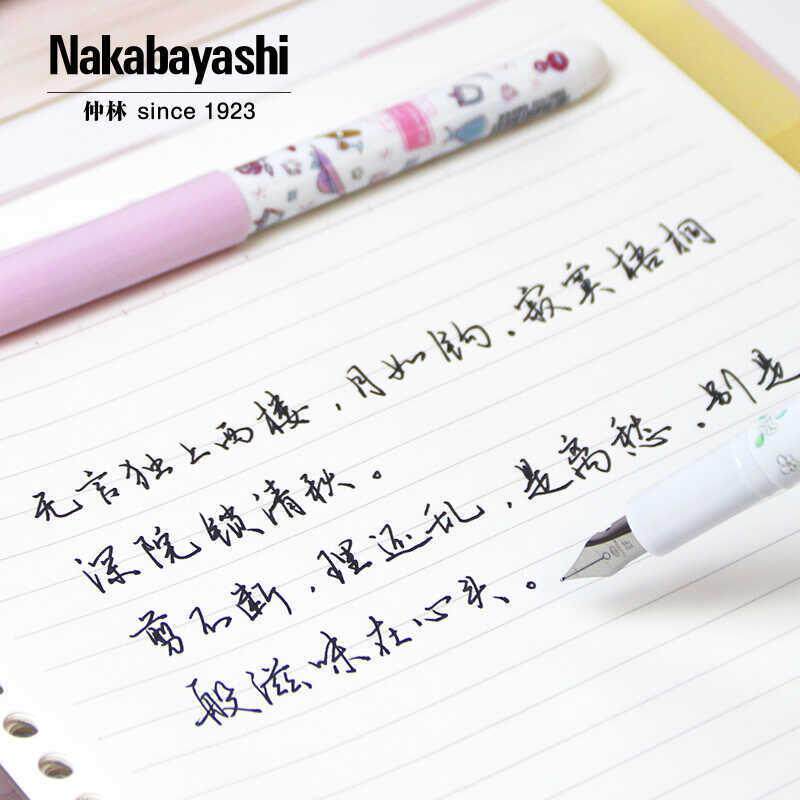 Nakabayashi
仲林 since 1923
无言独上西楼，月如钩，寂寞梧桐
深院锁清秋。
剪不断，理还乱，是离愁，别是
般滋味在心头。